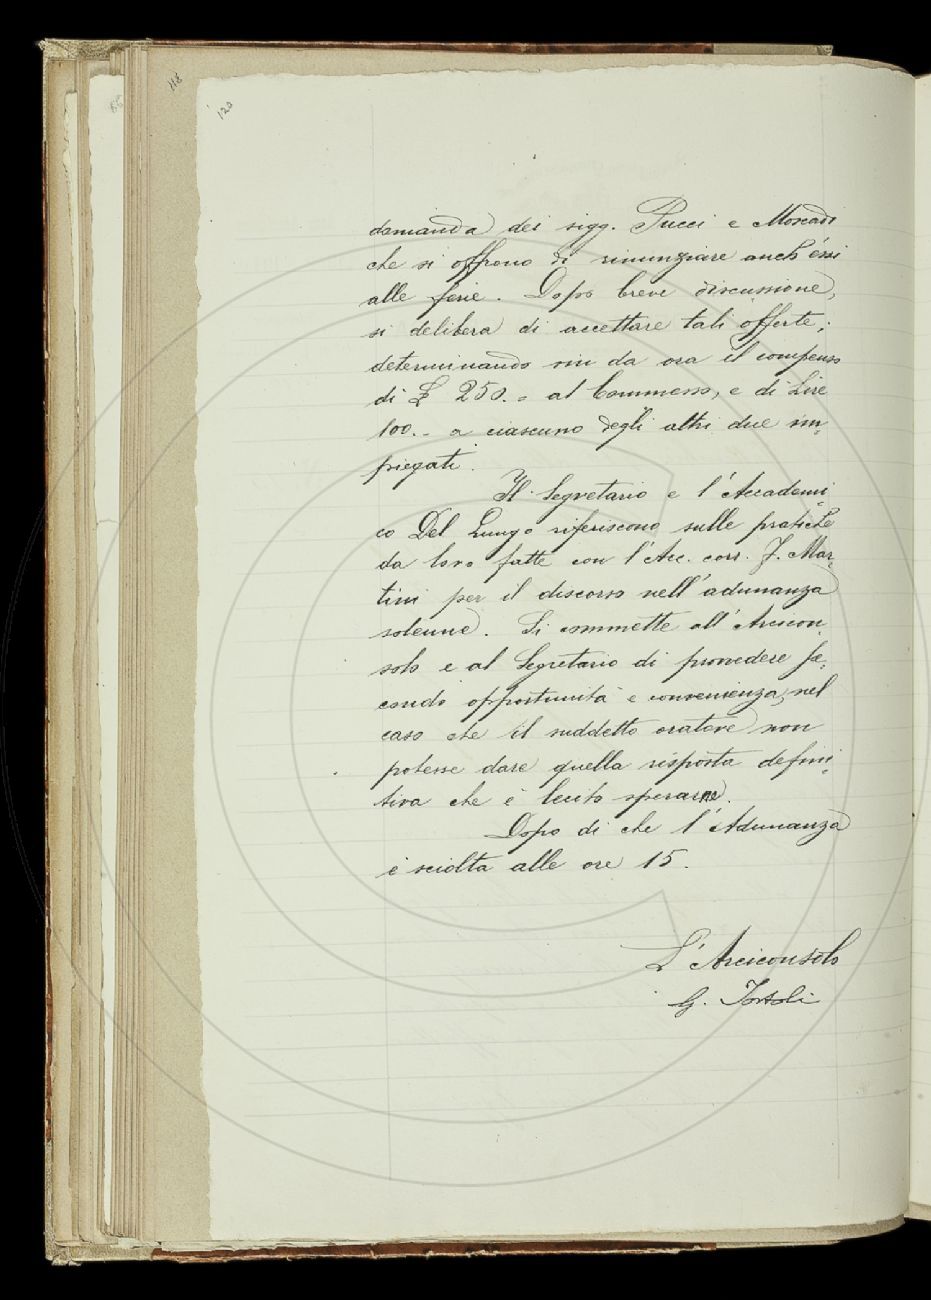 118
120
domanda dei sigg. Pucci e Moscadi
che si offrono di rinunziare anch'essi
alle ferie. Dopo breve discussione,
si delibera di accettare tali offerte;
determinando sin da ora il compenso
di £ 250.= al Commesso, e di Lire
100.- a ciascuno degli altri due im-
piegati.
Il Segretario e l'Accademi-
co Del Lungo riferiscono sulle pratiche
da loro fatte con l'Acc. corr. F. Mar-
tini per il discorso nell'adunanza
solenne. Si commette all'Arcicon-
solo e al Segretario di provvedere se-
condo opportunità e convenienza, nel
caso che il suddetto oratore non
potesse dare quella risposta defini-
tiva che è lecito sperarne.
Dopo di che l'Adunanza
è sciolta alle ore 15.
L'Arciconsolo
G. Tortoli